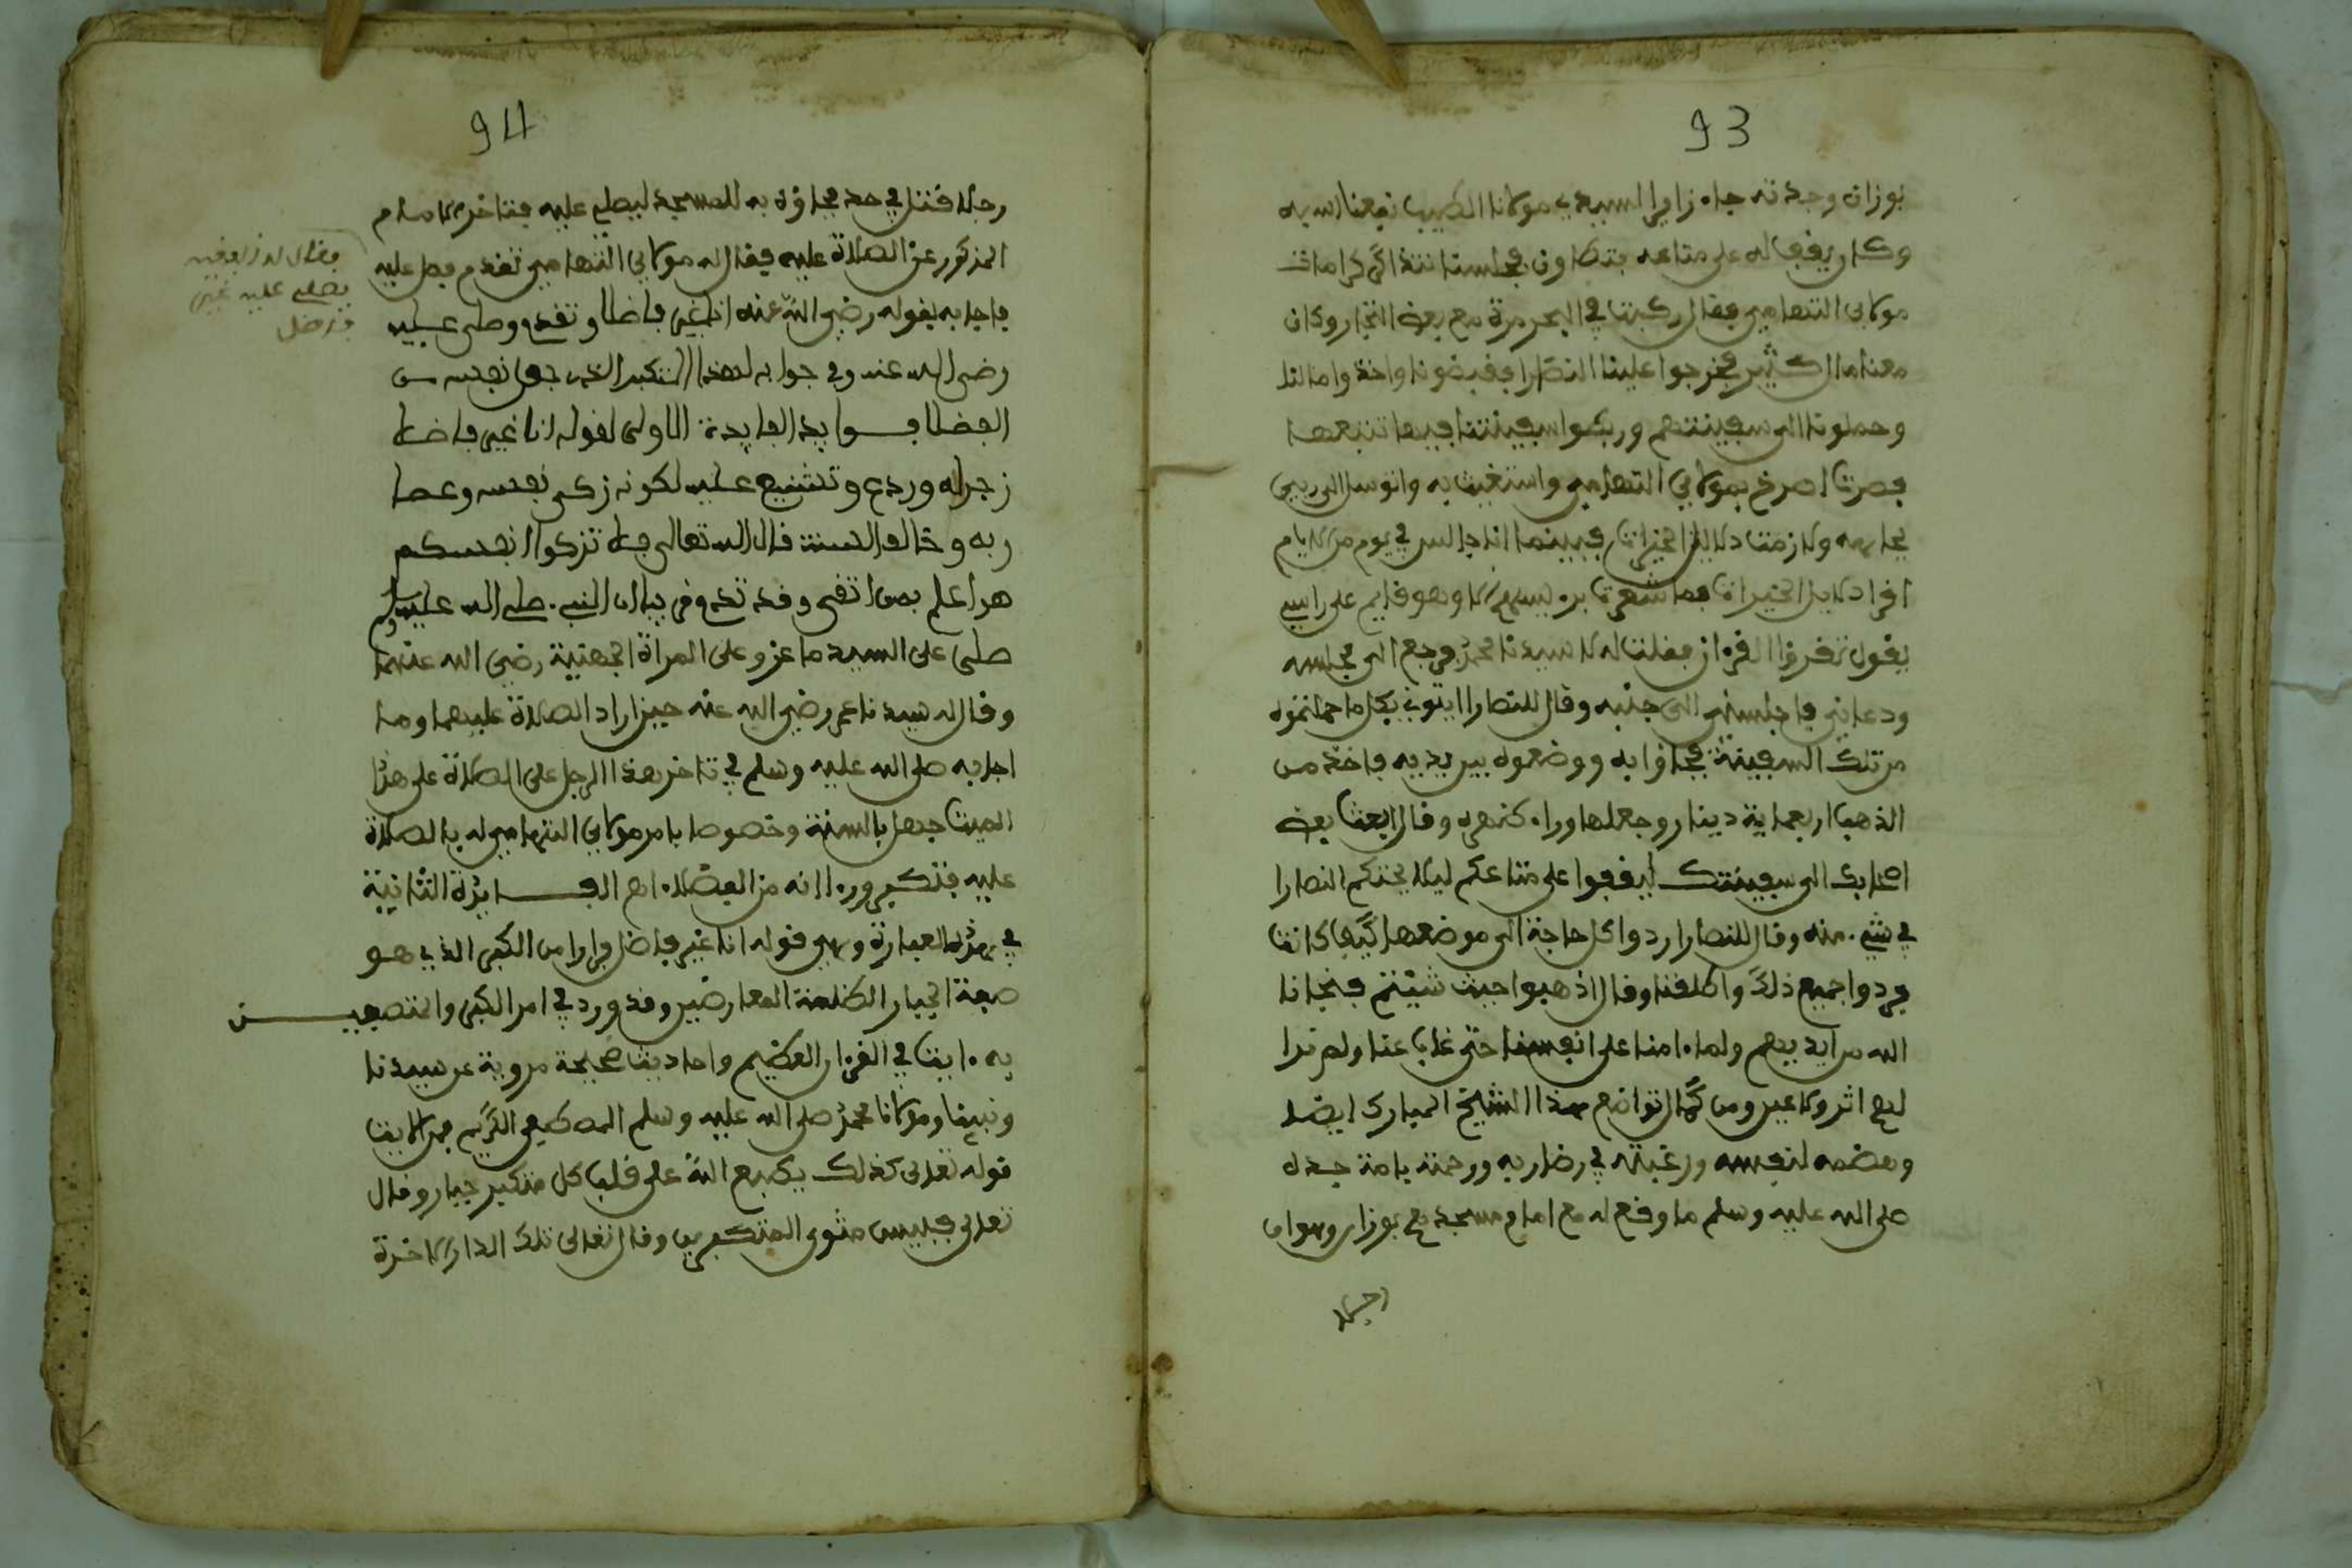 93
بوزان وجدته جاء زايرا لسيدي مولانا الطيب نفعنا الله به
وكان يفف له على متاعه بتطاون فجلسنا نتذاكر كرامات
مولاي التهامي فقال ركبت في البحر مرة مع بعض التجار وكان
معنا مال كثير فخرجوا علينا النصارا فقبضونا واخذوا مالنا
وحملونا الى سفينتهم وركبوا سفينتنا فيها تتبعها
فصرت اصرخ بمولاي التهامي واستغيث به واتوسل الى ربي
بجاهه ولازمت دلايل الخيرات فبينما انا جالس في يوم من الايام
افرا دلايل الخيرات فما شعرت به الا وهو قايم على راسي
يقول تقرءوا القرءان فقلت له لا سيدنا محمد فرجع الى مجلسه
ودعاني فاجلسني الى جنبه وقال للنصارا ايتوني بكل ما حملتموه
من تلك السفينة فجاءوا به ووضعوه بين يديه فاخذ من
الذهب اربعماية دينار وجعلها وراء كتفيه وقال ابعث بعض
اصحابك الى سفينتك ليقفوا على متاعكم ليلا يخنكم النصارا
في شيء منه وقال للنصارا ردوا كل حاجة الى موضعها كيف كانت
فردوا جميع ذلك واطلقنا وقال اذهبوا حيث شيتم فنجانا
الله من ايديهم ولما ءامنا على انفسنا حتى غاب عنا ولم نرا
لهم اثر ولا عين ومن كمال تواضع هذا الشيخ المبارك ايضا
وهضمه لنفسه ورغبته في رضا ربه ورحمته بامة جده
صلى الله عليه وسلم ما وقع له مع امام مسجد مع بوزان وهو ان
رجلا
94
رجلا قتل في حد فجاءوه به للمسجد ليصلى عليه فتاخر الامام
المذكور عن الصلاة عليه فقال له مولاي التهامي تقدم فصل عليه
فاجابه بقوله رضي الله عنه انا غير فاضل وتقدم وصلى عليه
رضي الله عنه وفي جوابه لهذا المتكبر الذي جعل نفسه من
الفضلا فوايد الفايدة الاولى لقوله انا غير فاضل
زجرا له وردع وتشنيع عليه لكونه زكى نفسه وعصا
ربه وخالف السنة قال الله تعالى فلا تزكوا انفسكم
هو اعلم بمن اتقى وقد تقدم في بيان ان النبي صلى الله عليه وسلم
صلى على السيد ماعز وعلى المراة الجهنية رضي الله عنهما
وقال له سيدنا عمر رضي الله عنه حين اراد الصلاة عليهما وما
اجابه صلى الله عليه وسلم في تاخر هذا الرجل على الصلاة على هذا
الميت جهل بالسنة وخصوصا يامر مولاي التهامي له بالصلاة
عليه فتكبر ورءا انه من الفضلاء اهـ الفـايدة الثانية
في هذه العبارة وهي قوله انا غير فاضل فرارا من الكبر الذي هو
صفة الجبار الظلمة المعارضين وقد ورد في امر الكبر والمتصفيـن
به ءايت في القرءان العظيم واحاديث صحيحة مروية عن سيدنا
ونبينا ومولانا محمد صلى الله عليه وسلم المصطفى الكريم فمن الايت
قوله تعالى كذلك يطبع الله على قلب كل متكبر جبار وقال
تعالى فلبيس مثوى المتكبرين وقال تعالى تلك الدار الاخرة
فقال له الفقيه
يصلى عليه غير
فاضل